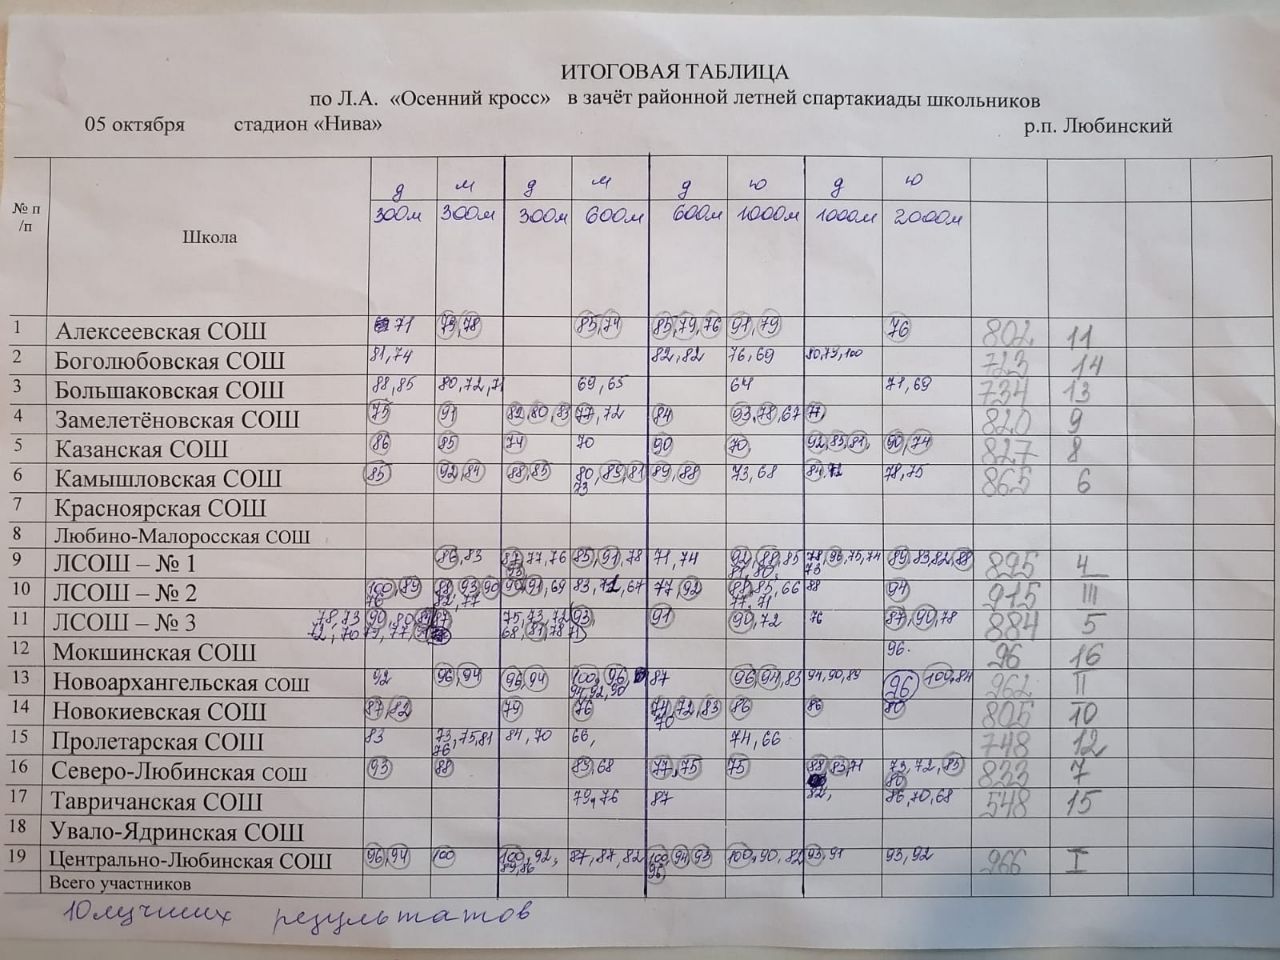 ИТОГОВАЯ ТАБЛИЦА
по Л.А. «Осенний кросс» в зачёт районной летней спартакиады школьников
05 октября стадион «Нива» р.п. Любинский
№ п/п Школа д м д м д ю д ю
300м 300м 300м 600м 600м 1000м 1000м 2000м
1 Алексеевская СОШ 71 79,78 85,74 85,79,76 91,79 76 802 11
2 Боголюбовская СОШ 81,74 82,82 76,69 80,73,100 723 14
3 Большаковская СОШ 88,85 80,72,71 69,65 64 71,69 734 13
4 Замелетёновская СОШ 75 91 82,80,83 77,72 84 93,78,67 77 820 9
5 Казанская СОШ 86 85 74 70 90 70 92,85,81 90,74 827 8
6 Камышловская СОШ 85 92,84 88,85 80,83,81 73 89,88 73,68 84,72 78,75 865 6
7 Красноярская СОШ
8 Любино-Малоросская СОШ
9 ЛСОШ – № 1 86,83 87,77,76 85,91,78 71,74 92,88,85 81,80 78,96,75,74 73 89,83,82,88 895 4
10 ЛСОШ – № 2 100,89 76 88,93,90 82,77 99,91,69 83,72,67 77,92 85,66 77,71 88 91 915 III
11 ЛСОШ – № 3 78,73 90,80 70 77 87 75,73,72 68,81,78 93 91 90,72 76 87,90,78 884 5
12 Мокшинская СОШ 96 96 16
13 Новоархангельская СОШ 92 96,94 96,94 100,96 94,92,90 87 96,94,83 94,90,89 96 100,84 962 II
14 Новокиевская СОШ 87,82 79 76 74,72,83 70 86 86 80 805 10
15 Пролетарская СОШ 83 73,75,81 76 84,70 66, 74,66 748 12
16 Северо-Любинская СОШ 93 88 83,68 77,75 75 88,83,71 73,72,85 80 833 7
17 Тавричанская СОШ 79,76 87 82, 86,70,68 548 15
18 Увало-Ядринская СОШ
19 Центрально-Любинская СОШ 96,94 100 100,92, 89,86 87,87,82 100,94,93 96 100,90,82 93,91 93,92 966 I
Всего участников
10 лучших результатов